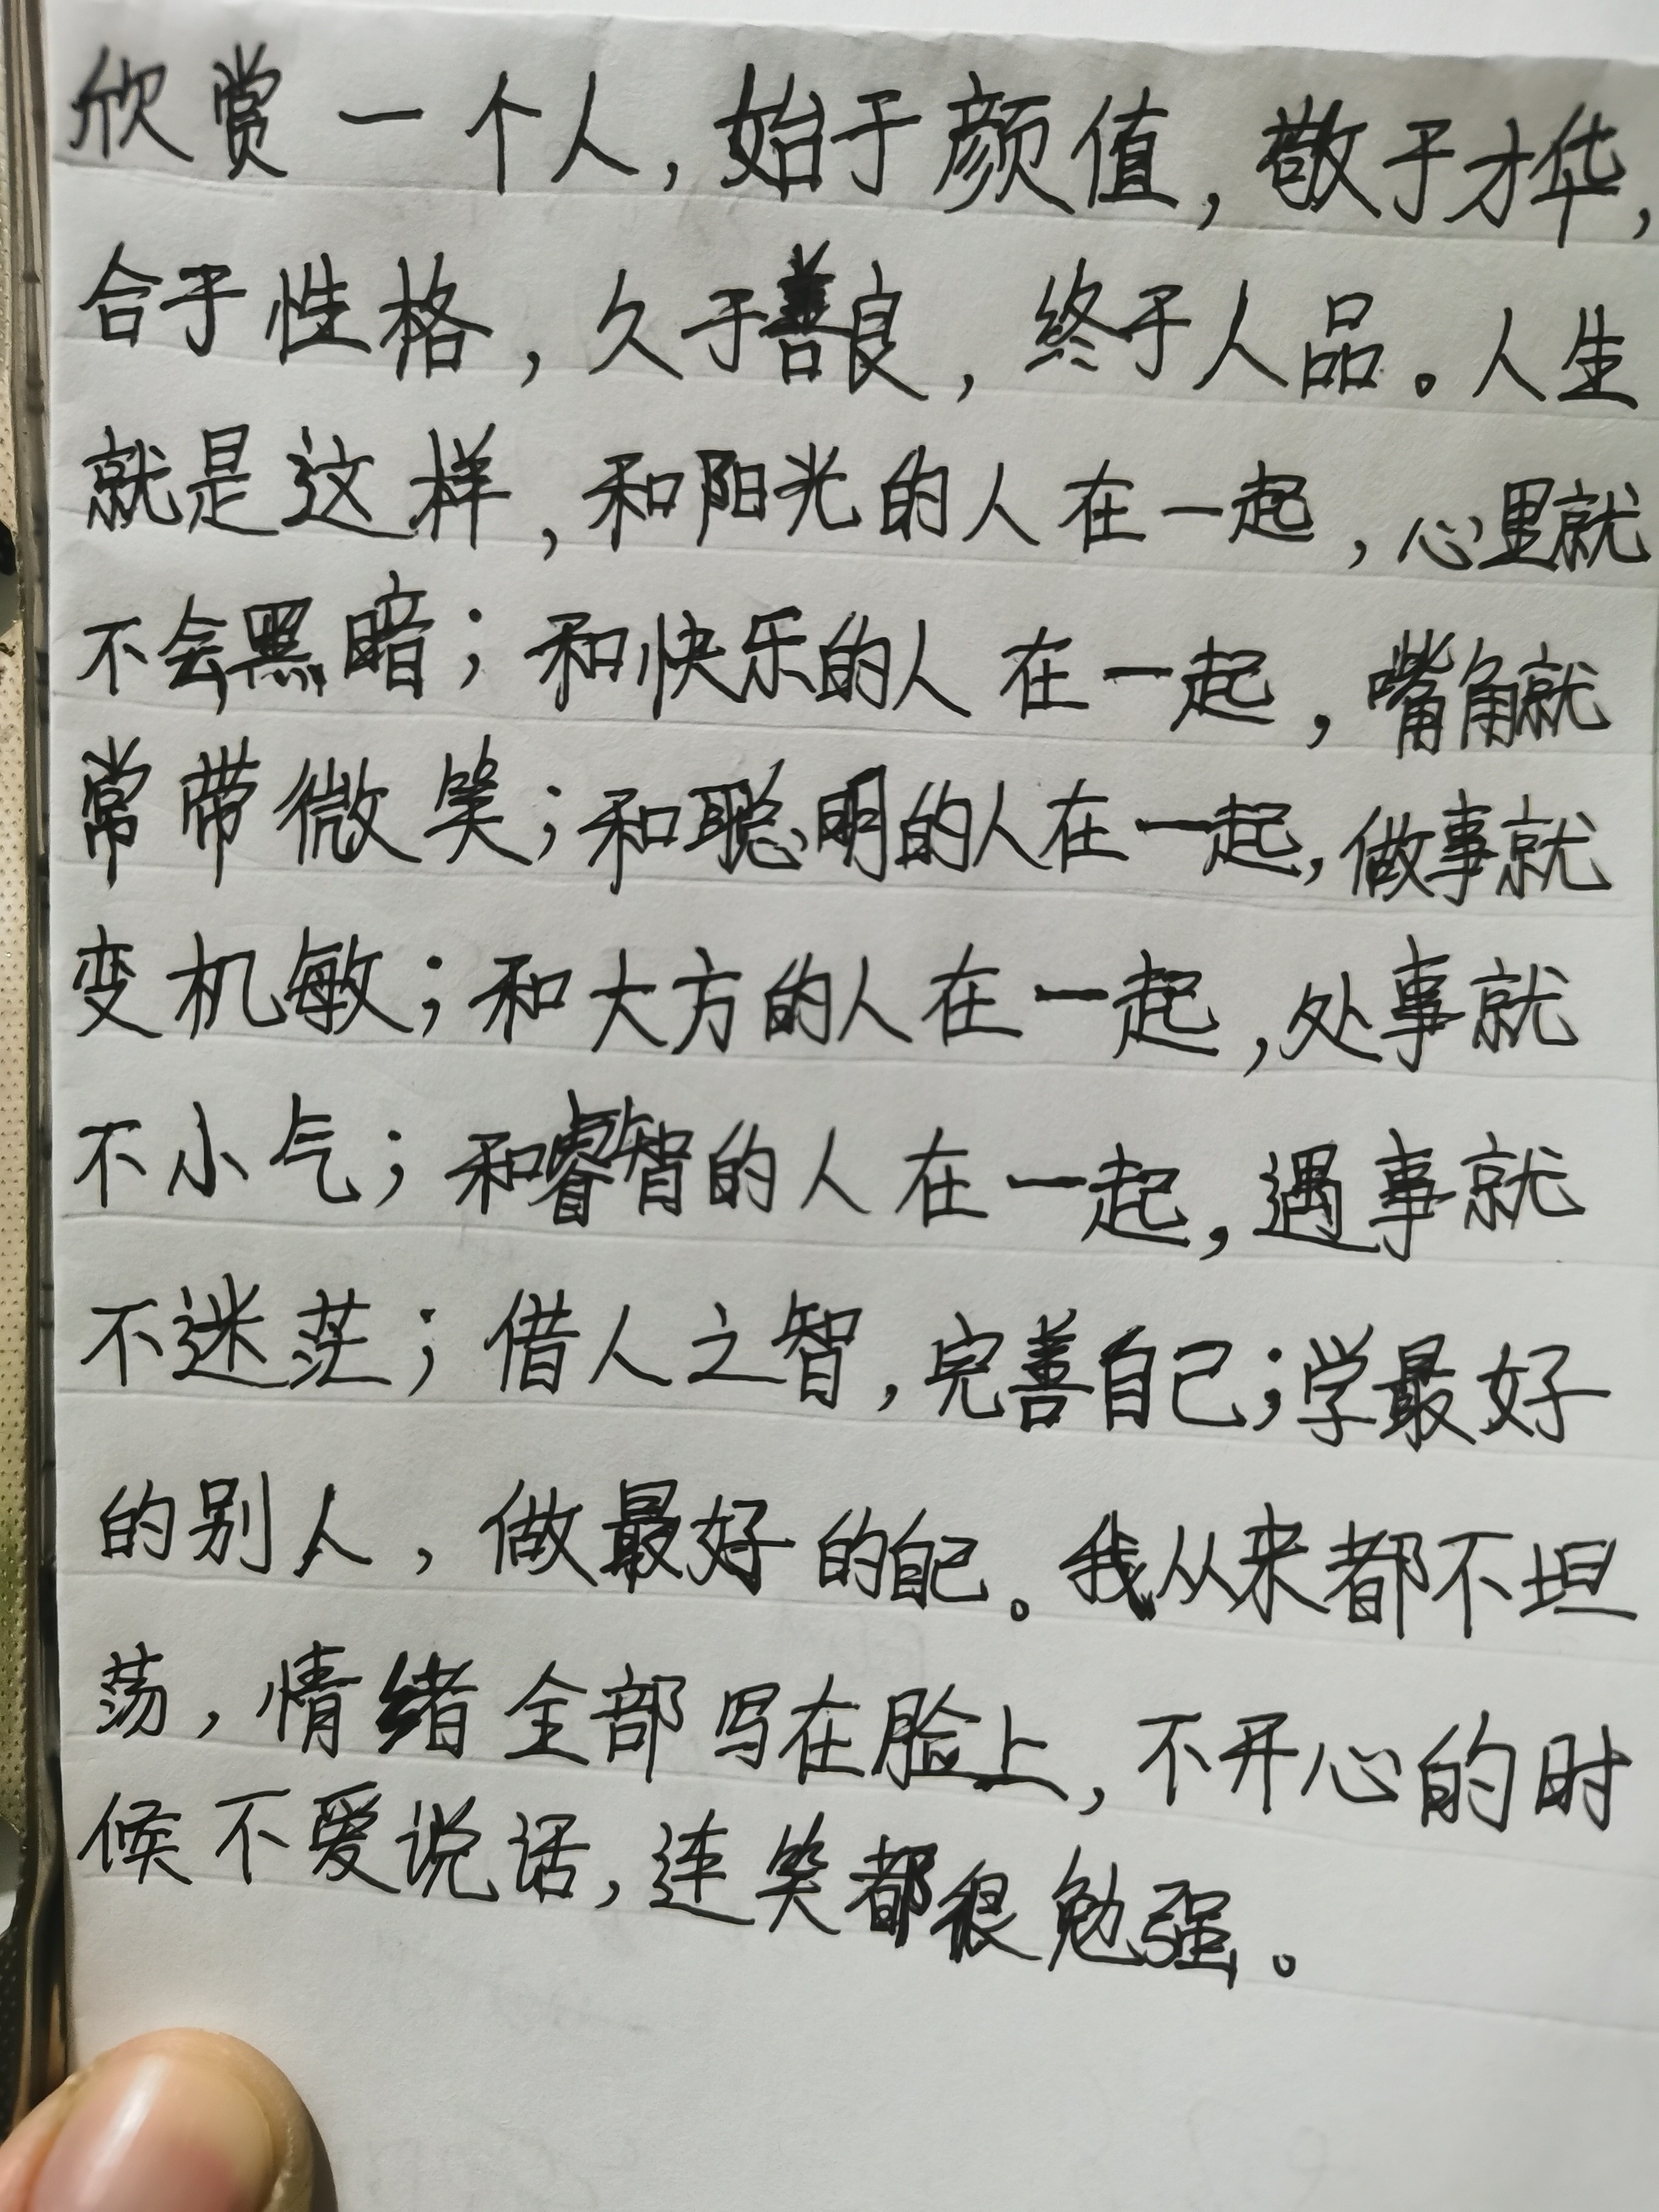 欣赏一个人，始于颜值，敬于才华，
合于性格，久于善良，终于人品。人生
就是这样，和阳光的人在一起，心里就
不会黑暗；和快乐的人在一起，嘴角就
常带微笑；和聪明的人在一起，做事就
变机敏；和大方的人在一起，处事就
不小气；和睿智的人在一起，遇事就
不迷茫；借人之智，完善自己；学最好
的别人，做最好的自己。我从来都不坦
荡，情绪全部写在脸上，不开心的时
候不爱说话，连笑都很勉强。